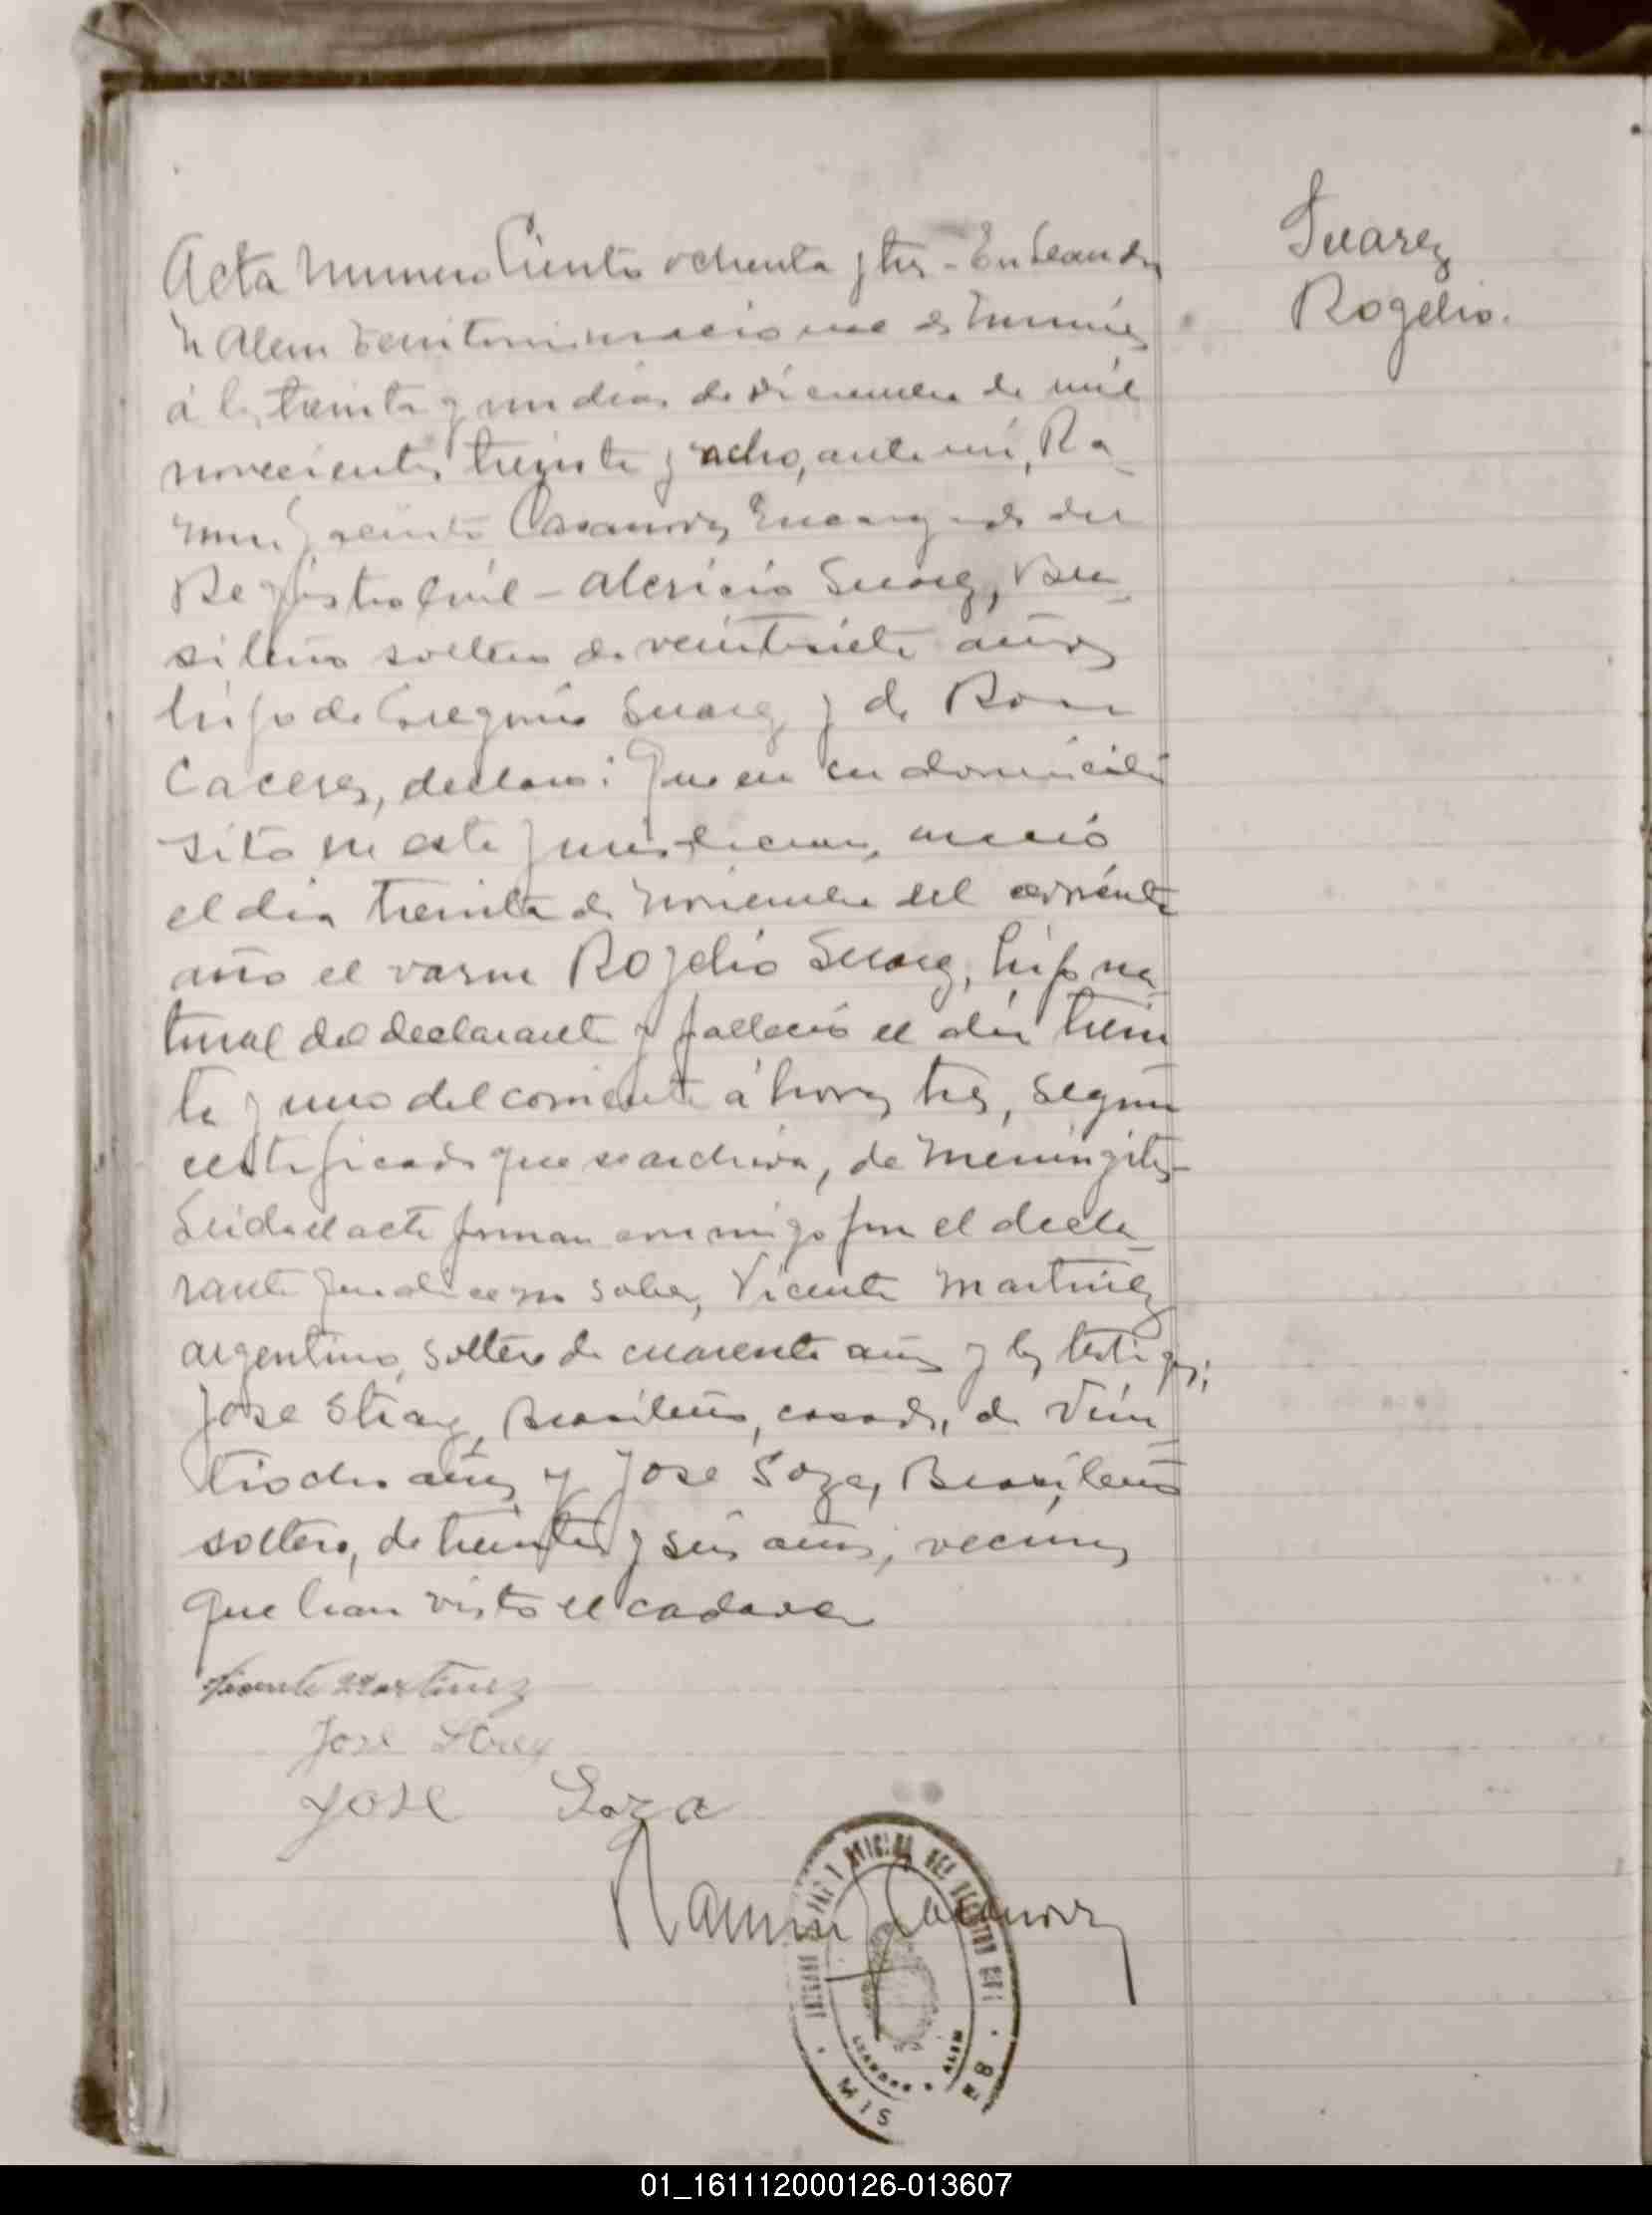 Suarez
Rogelio.
Acta Numero Ciento ochenta y tres - En Leandro
N Alem Territorio nacional de Misiones
á los treinta y un dias de Diciembre de mil
novecientos treinta y ocho, ante mi, Ra
mon Casanova Encargado del
Registro Civil - Suarez, Bra
sileño soltero de veintisiete años
hijo de Gregorio Suarez y de Rosa
Caceres, declaro: Que en su domicilio
sito en esta jurisdiccion, nació
el dia treinta de Noviembre del corriente
año el varon Rogelio Suarez, hijo na
tural del declarante y fallecio el dia trein
ta y uno del corriente á horas tres, segun
certificado que se archiva, de Meningitis -
Leida el acta firman conmigo por el decla
rante que dice no saber, Vicente Martinez
argentino, soltero de cuarenta años y los testigos;
Jose Brasileño, casado, de Vein
tiocho años y Jose Soza, Brasileño
soltero, de treinta y seis años, vecinos
que han visto el cadaver
Vicente Martinez
Jose
Jose Soza
Ramon Casanova
JUZGADO DE PAZ Y OFICINA DEL REGISTRO CIVIL
LEANDRO N. ALEM
MIS
01_161112000126-013607